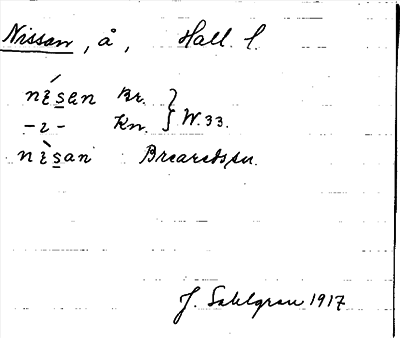 Nissan, å, Hall. l.
nísan Br.
-ı- Kn. } W. 33.
nìsan Brearedssn.
J. Sahlgren 1917